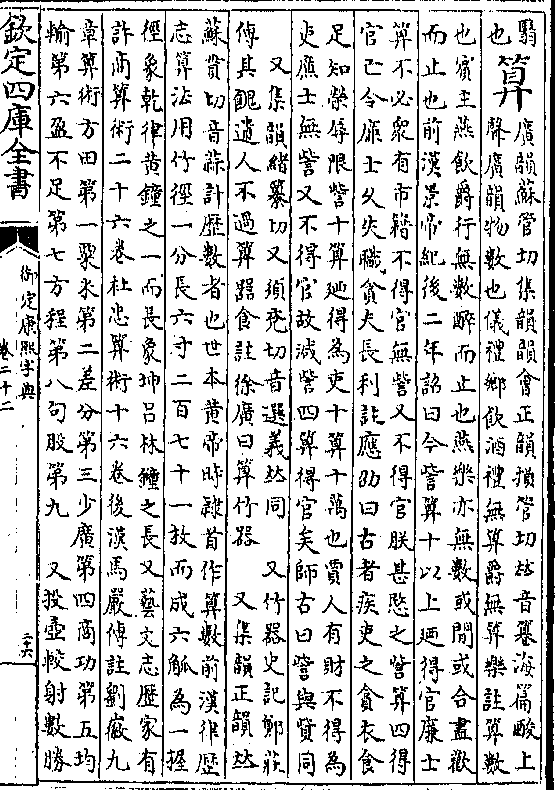 翳
也
算
廣韻蘇管切集韻韻會正韻損管切𠀤音纂海篇酸上
聲廣韻物數也儀禮鄉飲酒禮無算爵無算樂註算數
也賔主燕飲爵行無數醉而止也燕樂亦無數或間或合盡歡
而止也前漢景帝紀後二年詔曰今訾算十以上廼得官廉士
算不必衆有市籍不得官無訾又不得官朕甚愍之訾算四得
官亡令廉士久失職貪夫長利註應劭曰古者疾吏之貪衣食
足知榮辱限訾十算廼得為吏十算十萬也賈人有財不得為
吏廉士無訾又不得官故減訾四算得官矣師古曰訾與貲同
又集韻緒纂切又須兖切音選義𠀤同　又竹器史記鄭莊
傳其餽遺人不過算器食註徐廣曰算竹器　又集韻正韻𠀤
蘇貫切音蒜計歷數者也世本黄帝時隷首作算數前漢律歷
志算法用竹徑一分長六寸二百七十一枚而成六觚為一握
徑象乾律黄鐘之一而長象坤吕林鐘之長又藝文志歷家有
許商算術二十六卷杜忠算術十六卷後漢馬嚴傳註劉徽九
章算術方田第一粟米第二差分第三少廣第四商功第五均
輸第六盈不足第七方程第八句股第九　又投壺較射數勝
欽定四庫全書
御定康熙字典
卷二十二
二六